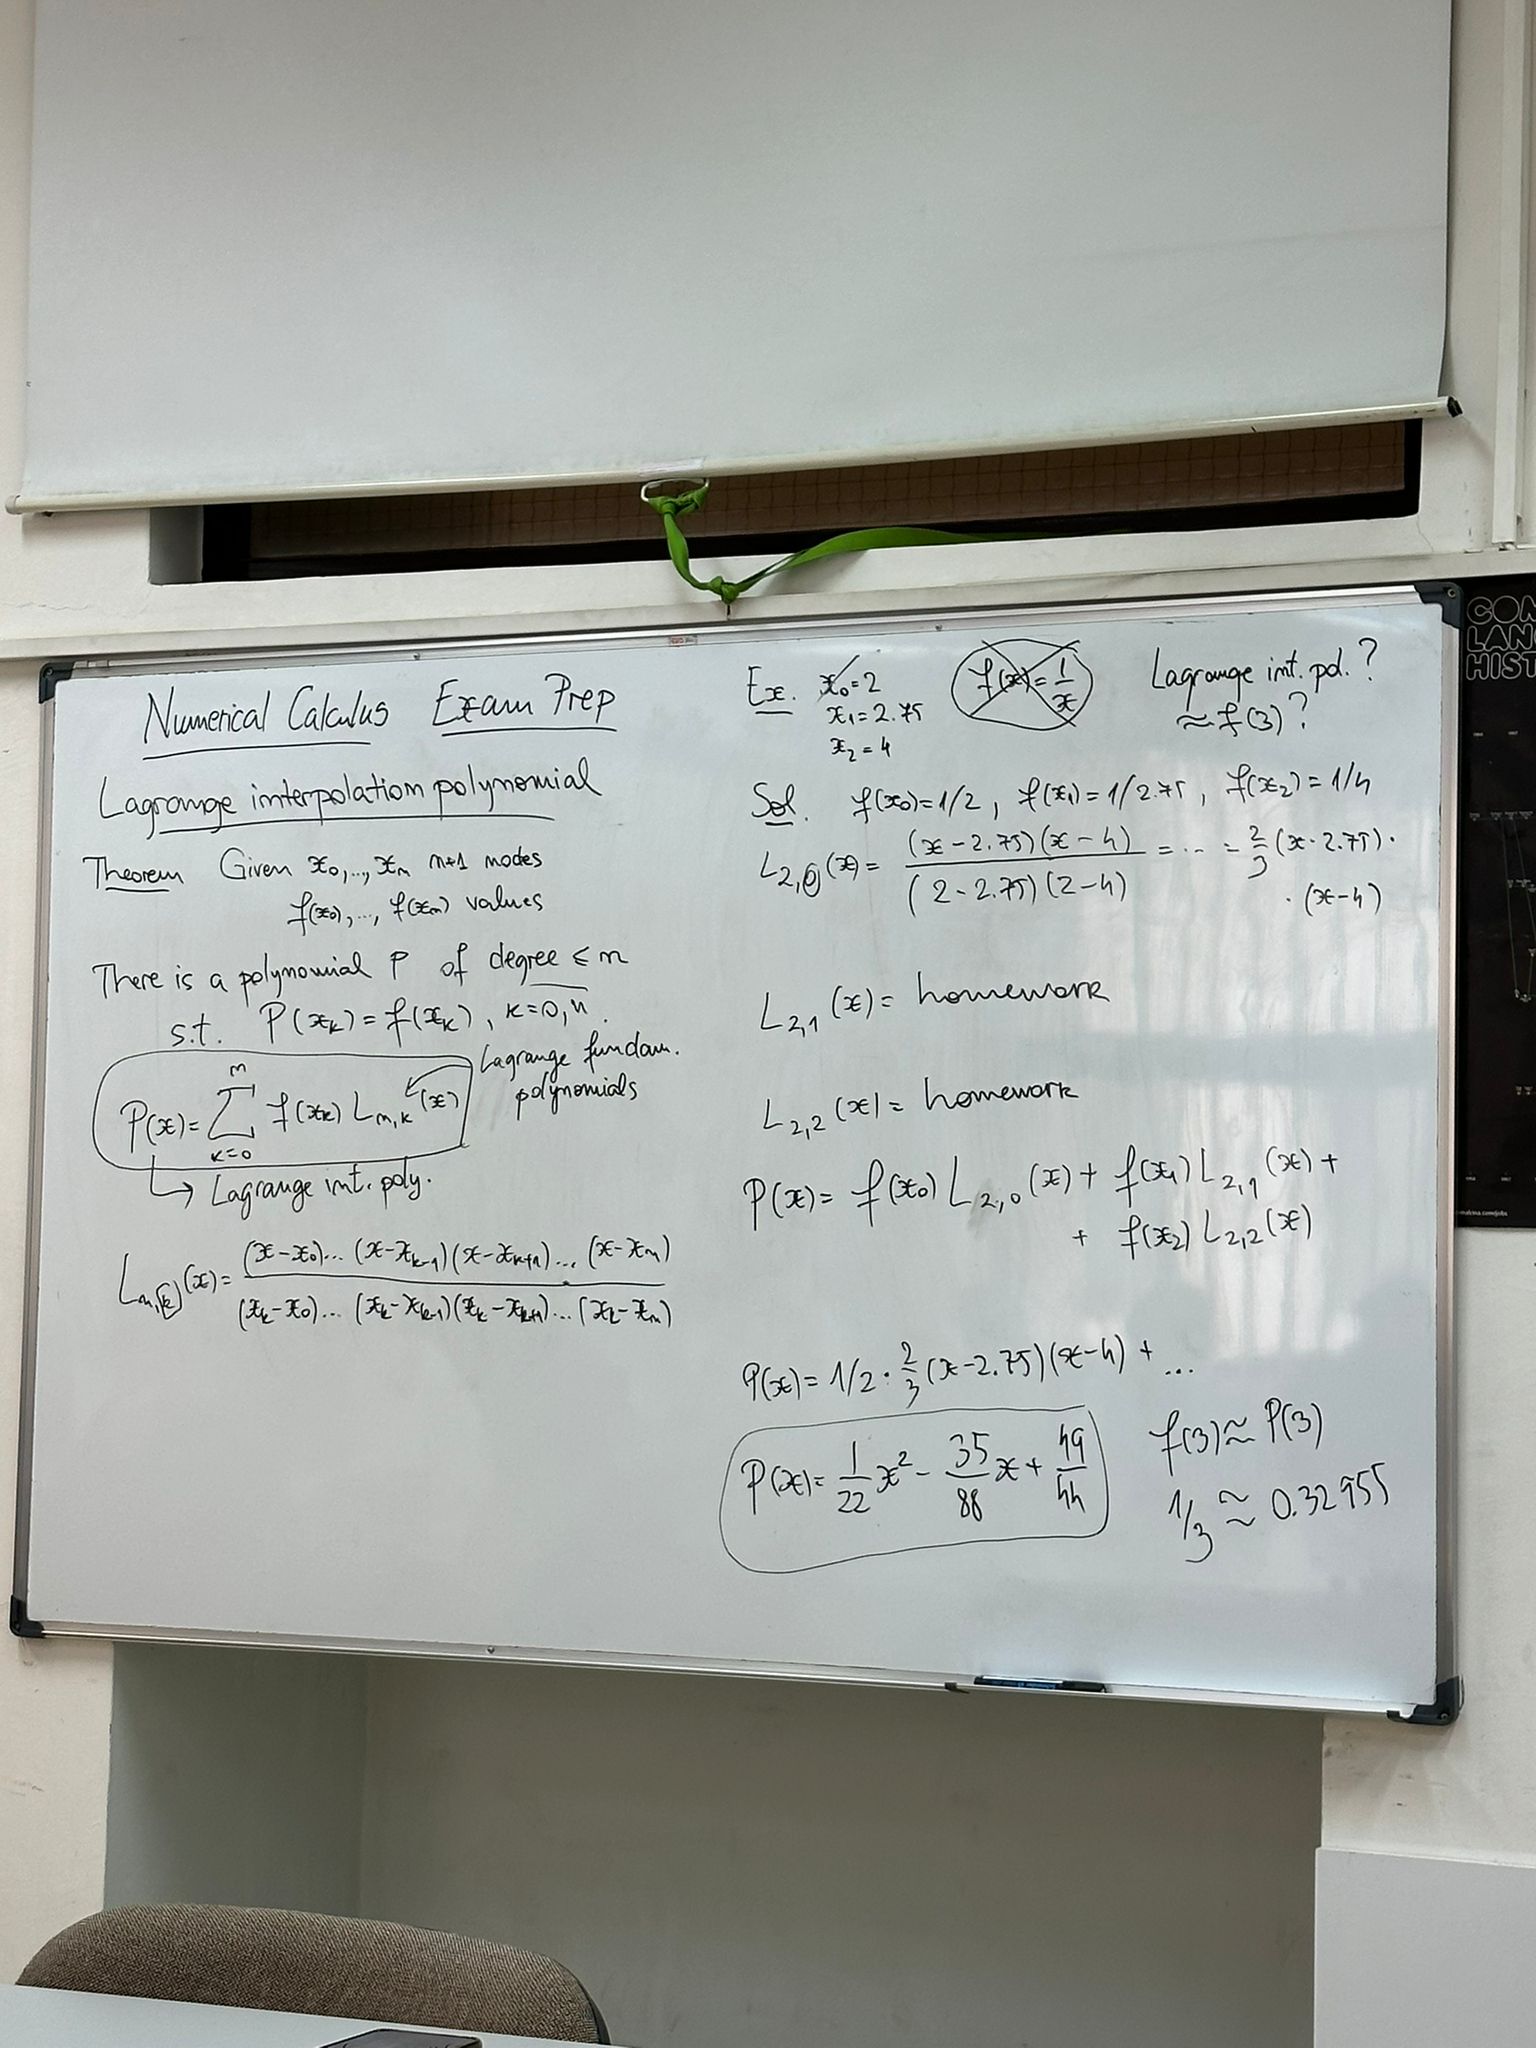 Numerical Calculus Exam Prep
Lagrange interpolation polynomial
Theorem Given x₀,..., xₙ n+1 nodes
f(x₀),..., f(xₙ) values
There is a polynomial P of degree ≤ n
s.t. P(xₖ) = f(xₖ), k=0,n.
P(x) = ∑ₖ₌₀ⁿ f(xₖ) Lₙ,ₖ(x)
Lagrange fundam.
polynomials
↳ Lagrange int. poly.
Lₙ,ₖ(x) = (x-x₀)...(x-xₖ₋₁)(x-xₖ₊₁)...(x-xₙ) / (xₖ-x₀)...(xₖ-xₖ₋₁)(xₖ-xₖ₊₁)...(xₖ-xₙ)
Ex. x₀=2 f(x)=1/x Lagrange int. pol.?
x₁=2.75 ≈ f(3)?
x₂=4
Sol. f(x₀)=1/2, f(x₁)=1/2.75, f(x₂)=1/4
L₂,₀(x) = (x-2.75)(x-4) / (2-2.75)(2-4) = ... = 2/3 (x-2.75)·
·(x-4)
L₂,₁(x) = homework
L₂,₂(x) = homework
P(x) = f(x₀) L₂,₀(x) + f(x₁) L₂,₁(x) +
+ f(x₂) L₂,₂(x)
P(x) = 1/2 · 2/3 (x-2.75)(x-4) + ...
P(x) = 1/22 x² - 35/88 x + 49/44
f(3) ≈ P(3)
1/3 ≈ 0.32955
HIST